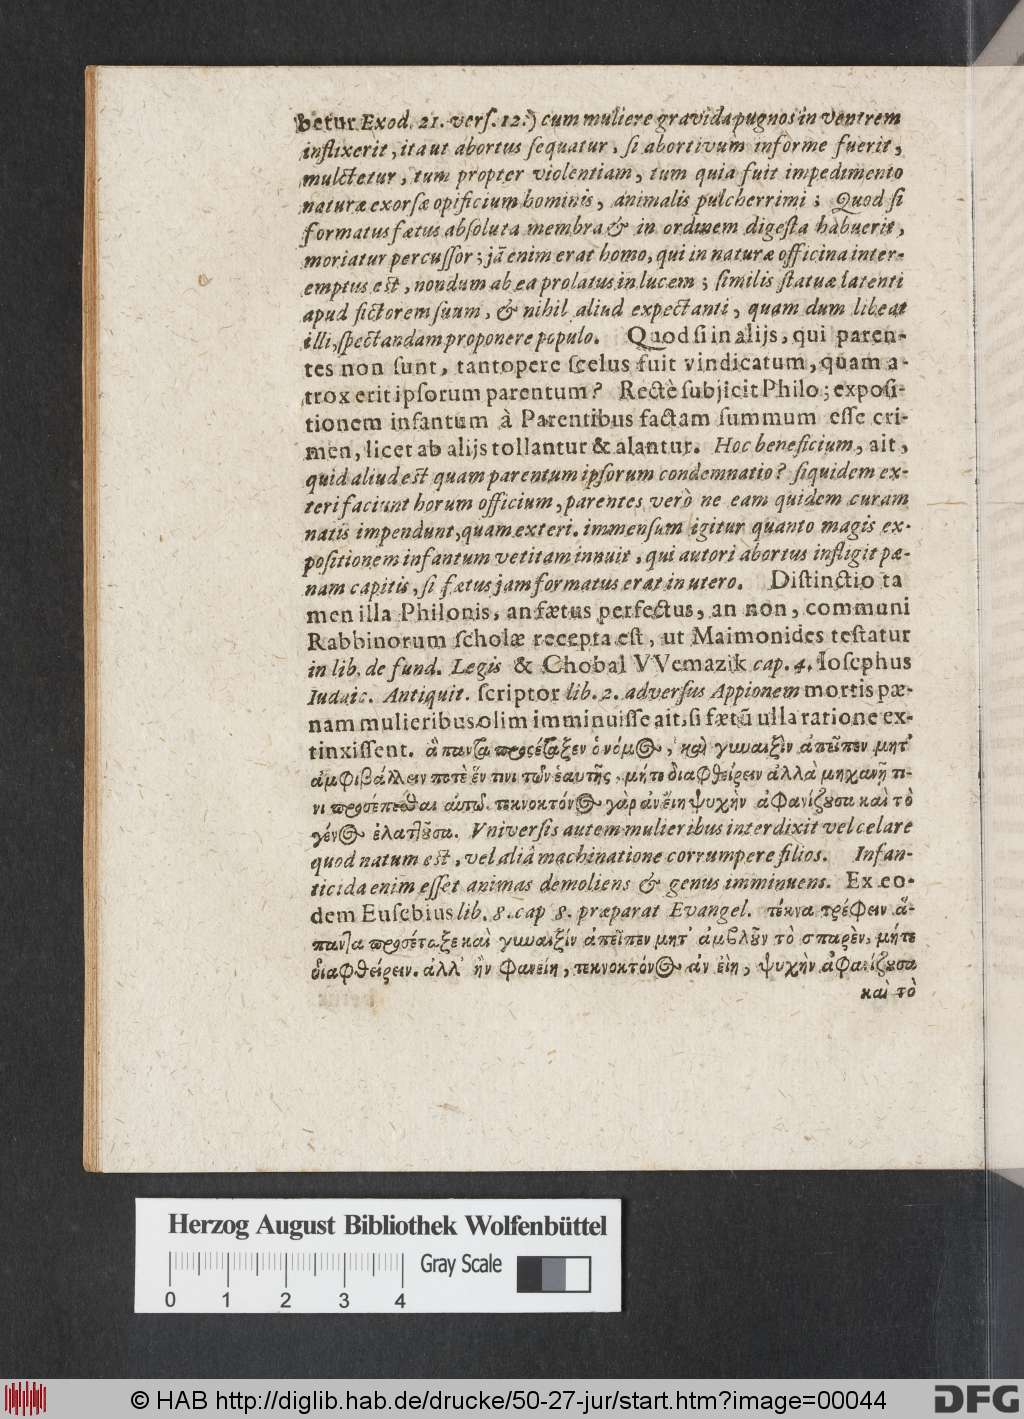 betur Exod. 21. verſ. 12.) cum muliere gravida pugnos in ventrem
inflixerit, ita ut abortus ſequatur, ſi abortivum informe fuerit,
mulctetur, tum propter violentiam, tum quia fuit impedimento
naturæ exorſæ opificium hominis, animalis pulcherrimi; Quod ſi
formatus fætus abſoluta membra & in ordinem digeſta habuerit,
moriatur percuſſor; jã enim erat homo, qui in naturæ officina inter-
emptus eſt, nondum ab ea prolatus in lucem; ſimilis ſtatuæ latenti
apud fictorem ſuum, & nihil aliud expectanti, quam dum libeat
illi, ſpectandam proponere populo. Quod ſi in alijs, qui paren-
tes non ſunt, tantopere ſcelus fuit vindicatum, quam a-
trox erit ipſorum parentum? Rectè ſubjicit Philo; expoſi-
tionem infantum à Parentibus factam ſummum eſſe cri-
men, licet ab alijs tollantur & alantur. Hoc beneficium, ait,
quid aliud eſt quam parentum ipſorum condemnatio? ſiquidem ex-
teri faciunt horum officium, parentes verò ne eam quidem curam
natis impendunt, quam exteri. immenſum igitur quanto magis ex-
poſitionem infantum vetitam innuit, qui autori abortus infligit pæ-
nam capitis, ſi fætus jam formatus erat in utero. Diſtinctio ta
men illa Philonis, an fætus perfectus, an non, communi
Rabbinorum ſcholæ recepta eſt, ut Maimonides teſtatur
in lib. de fund. Legis & Chobal VVemazik cap. 4. Ioſephus
Iudaic. Antiquit. ſcriptor lib. 2. adverſus Appionem mortis pæ-
nam mulieribus olim imminuiſſe ait, ſi fætũ ulla ratione ex-
tinxiſſent. ἅπαντα προσέταξεν ὁ νόμος, καὶ γυναιξὶν ἀπεῖπεν μητ'
ἀμφιβάλλειν ποτὲ ἕν τινι τῶν ἑαυτῆς, μήτε διαφθείρειν ἀλλὰ μηχανῇ τι-
νι προσέπεσθαι αὐτῶ. τεκνοκτόνος γὰρ ἀν εἴη ψυχὴν ἀφανίζουσα καὶ τὸ
γένος ἐλαττοῦσα. Vniverſis autem mulieribus interdixit vel celare
quod natum eſt, vel aliâ machinatione corrumpere filios. Infan-
ticida enim eſſet animas demoliens & genus imminuens. Ex eo-
dem Euſebius lib. 8. cap 8. præparat Evangel. τέκνα τρέφειν ἅ-
παντα προσέταξε καὶ γυναιξίν ἀπεῖπεν μητ' ἀμβλοῦν τὸ σπαρὲν, μήτε
διαφθείρειν. ἀλλ' ἢν φανείη, τεκνοκτόνος ἀν εἴη, ψυχὴν ἀφανίζουσα
καὶ τὸ
Herzog August Bibliothek Wolfenbüttel
Gray Scale
0 1 2 3 4
© HAB http://diglib.hab.de/drucke/50-27-jur/start.htm?image=00044
DFG